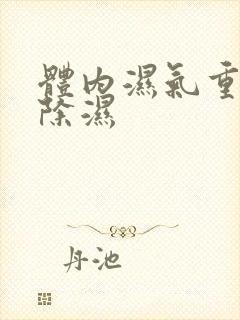 體内濕氣重
除濕
丹池